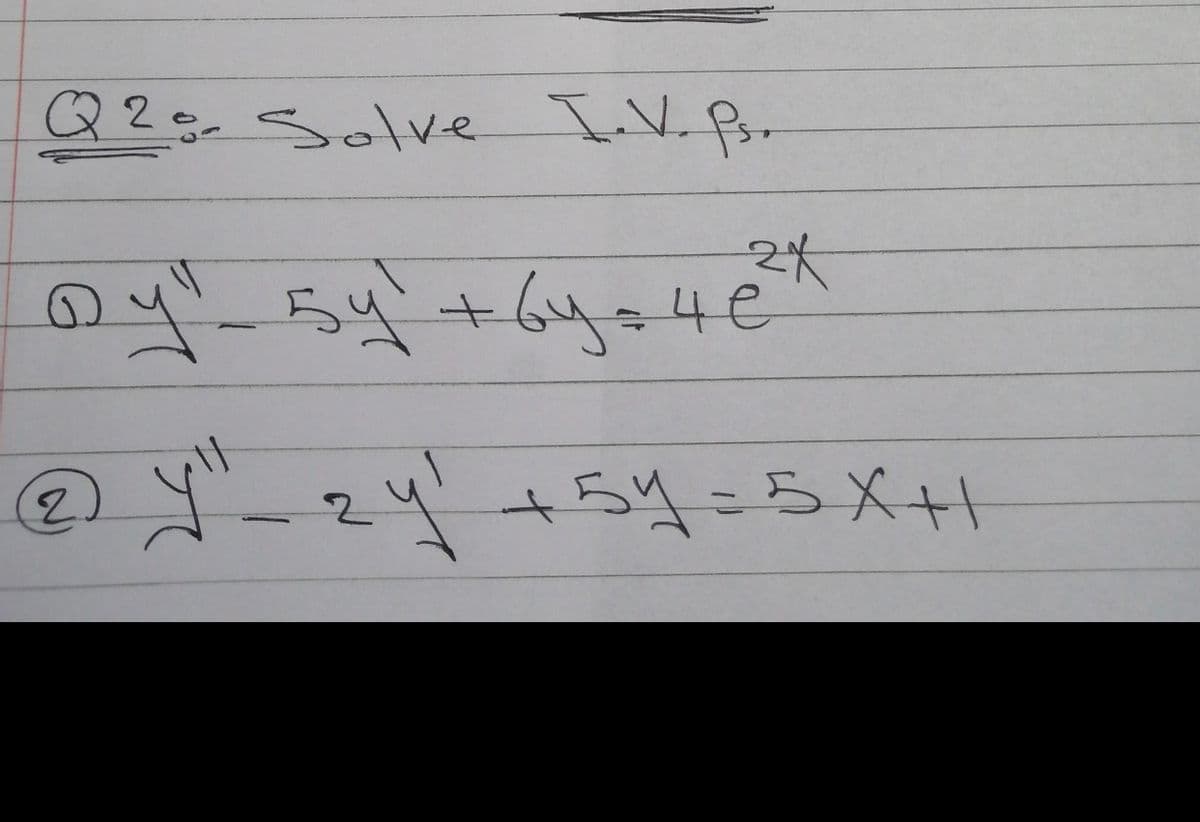 Q2:- Solve I.V.Ps.
① y'' - 5y' + 6y = 4e^2x
② y'' - 2y' + 5y = 5x+1